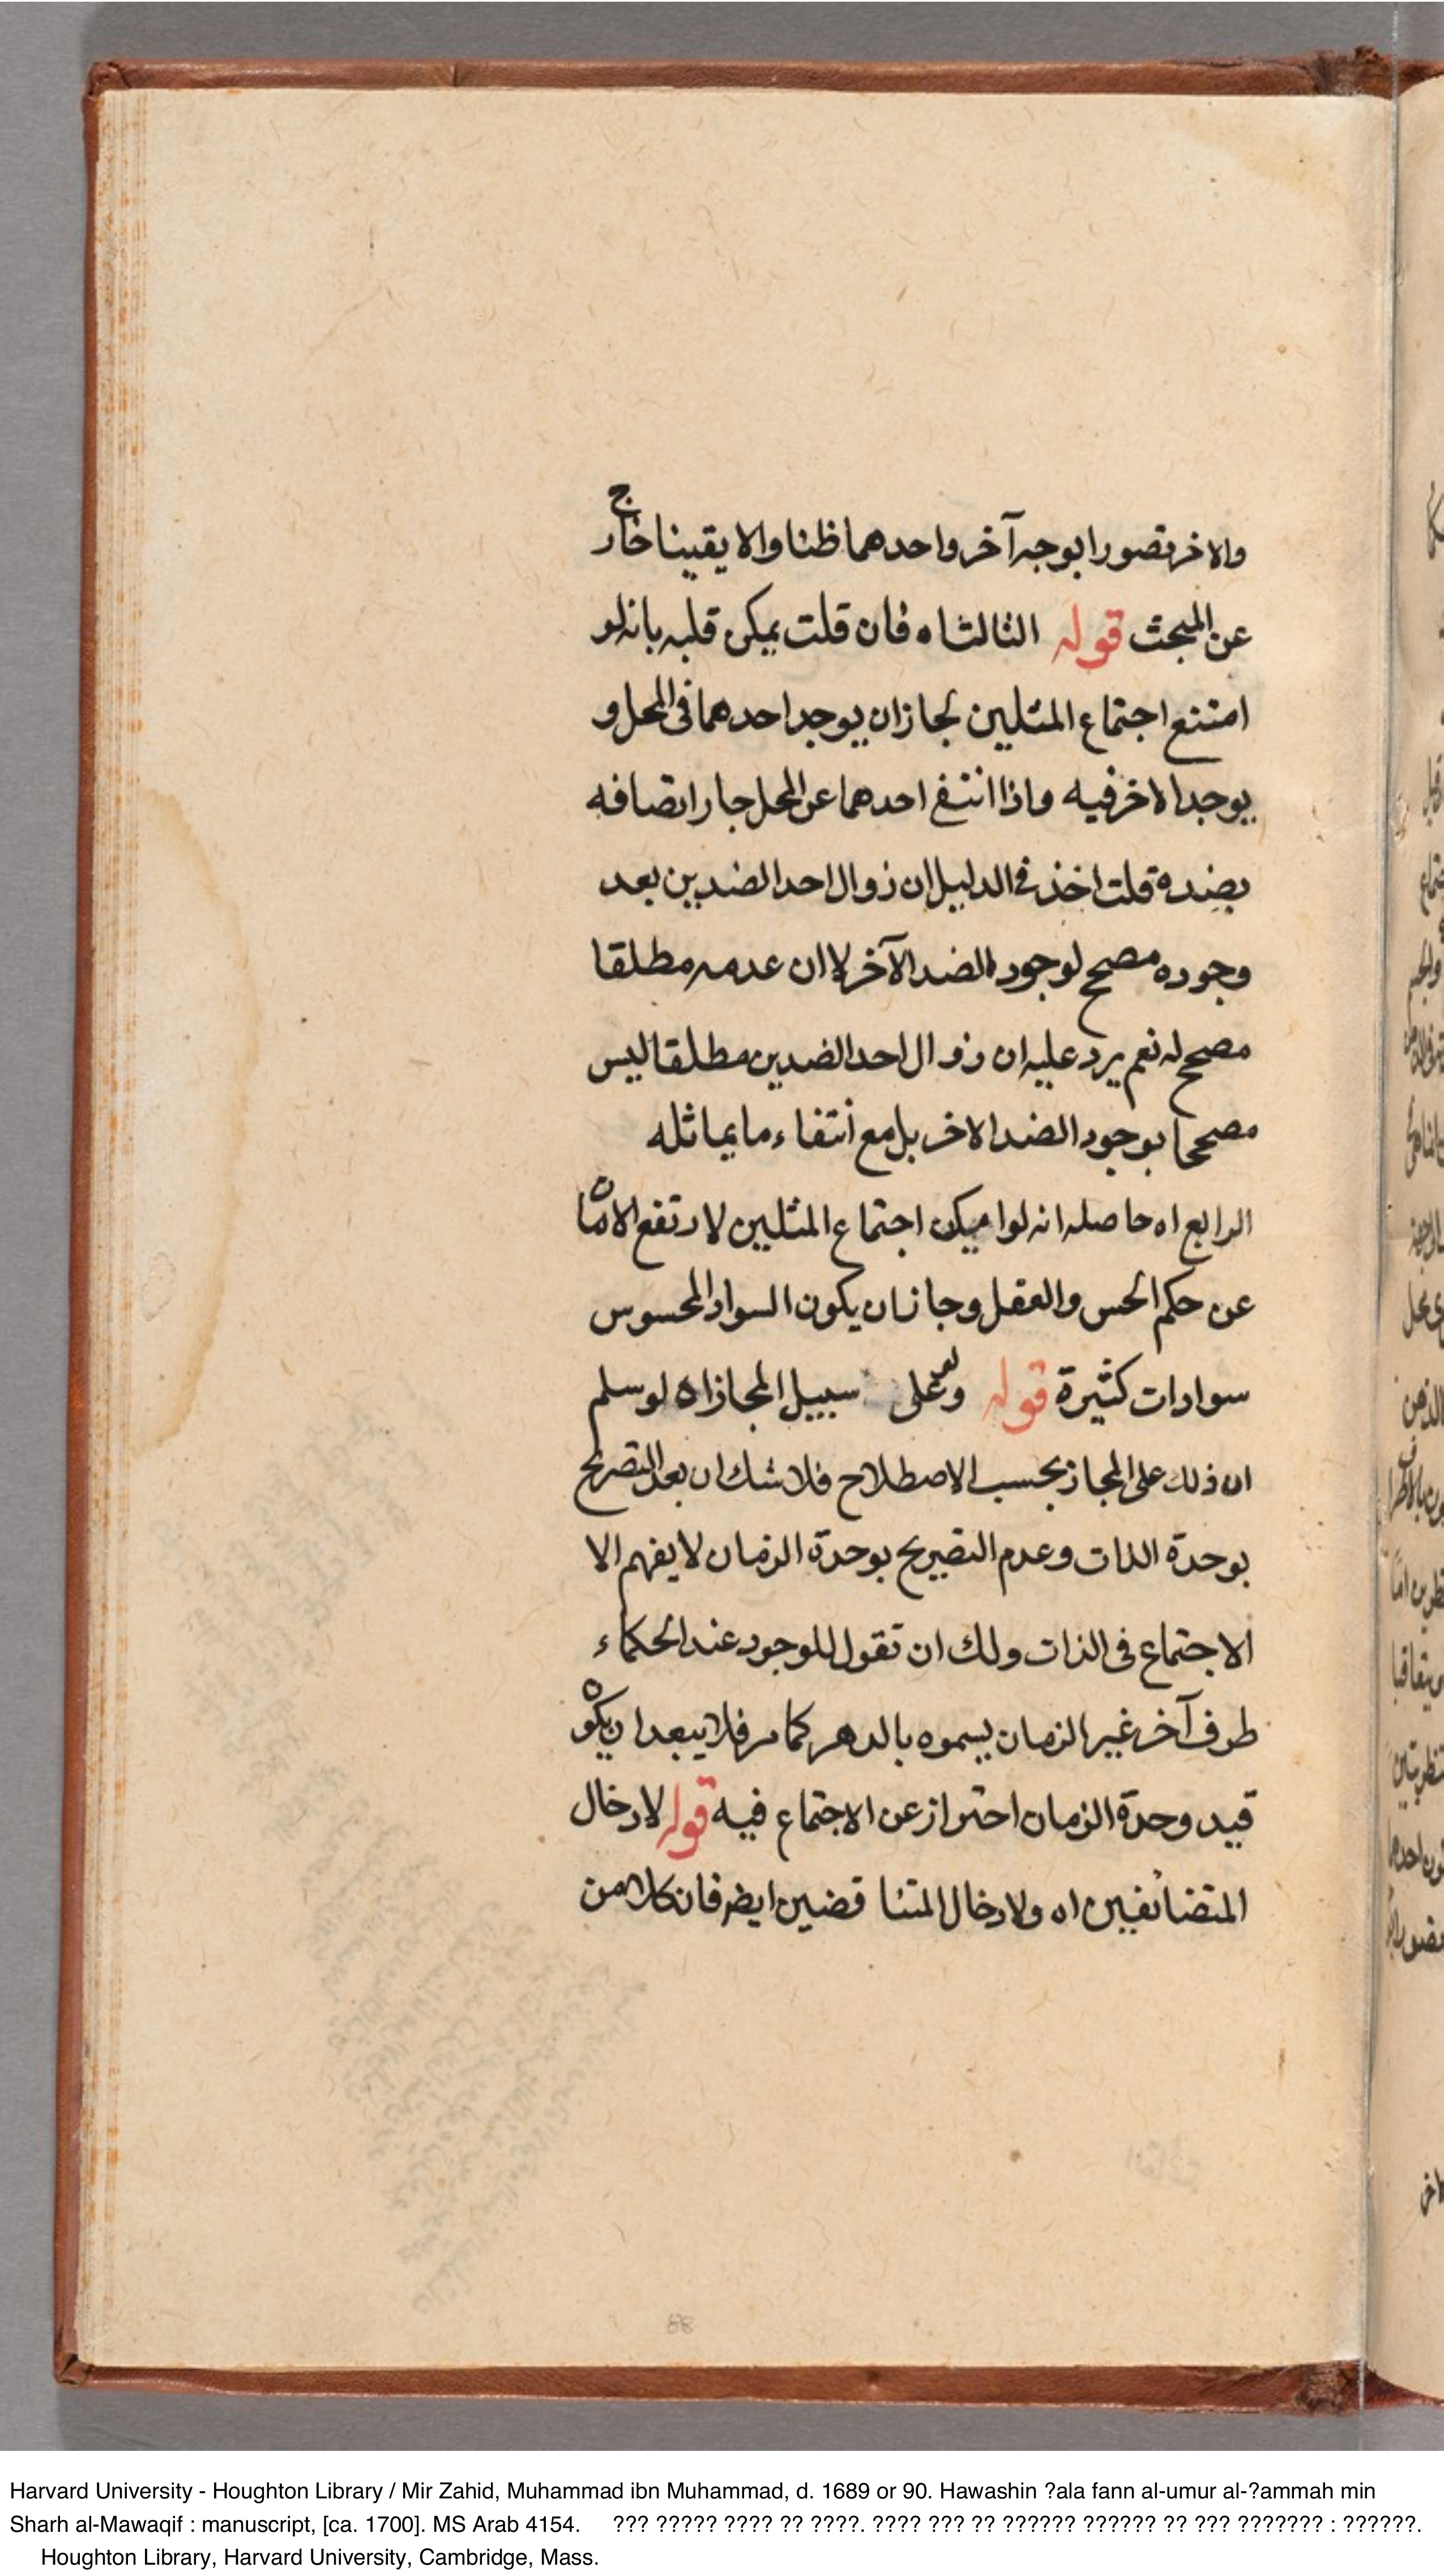 والاخر تصورا بوجه آخر واحدهما ظنا والا يقينا خارج
عن المبحث قوله الثالث اه فان قلت يمكن قلبه بانه لو
امتنع اجتماع المثلين لجاز ان يوجد احدهما في المحل و
يوجد الاخر فيه واذا انتفى احدهما عن المحل جاز اتصافه
بضده قلت اخذ في الدليل ان زوال احد الضدين بعد
وجوده مصحح لوجود الضد الآخر لا ان عدمه مطلقا
مصحح له نعم يرد عليه ان زوال احد الضدين مطلقا ليس
مصححا بوجود الضد الاخر بل مع انتفاء ما يماثله
الرابع اه حاصله انه لو امكن اجتماع المثلين لارتفع الامان
عن حكم الحس والعقل وجاز ان يكون السواد المحسوس
سوادات كثيرة قوله وعلى سبيل المجاز اه لو سلم
ان ذلك على المجاز بحسب الاصطلاح فلا شك ان بعد التصريح
بوحدة الذات وعدم التصريح بوحدة الزمان لا يفهم الا
الاجتماع في الذات ولك ان تقول للوجود عند الحكماء
طرف آخر غير الزمان يسموه بالدهر كما مر فلا يبعد ان يكون
قيد وحدة الزمان احتراز عن الاجتماع فيه قوله لادخال
المتضائفين اه ولادخال المتناقضين ايضا فان كلا من
88
Harvard University - Houghton Library / Mir Zahid, Muhammad ibn Muhammad, d. 1689 or 90. Hawashin ?ala fann al-umur al-?ammah min
Sharh al-Mawaqif : manuscript, [ca. 1700]. MS Arab 4154. ??? ????? ???? ?? ????. ???? ??? ?? ?????? ?????? ?? ??? ??????? : ??????.
Houghton Library, Harvard University, Cambridge, Mass.